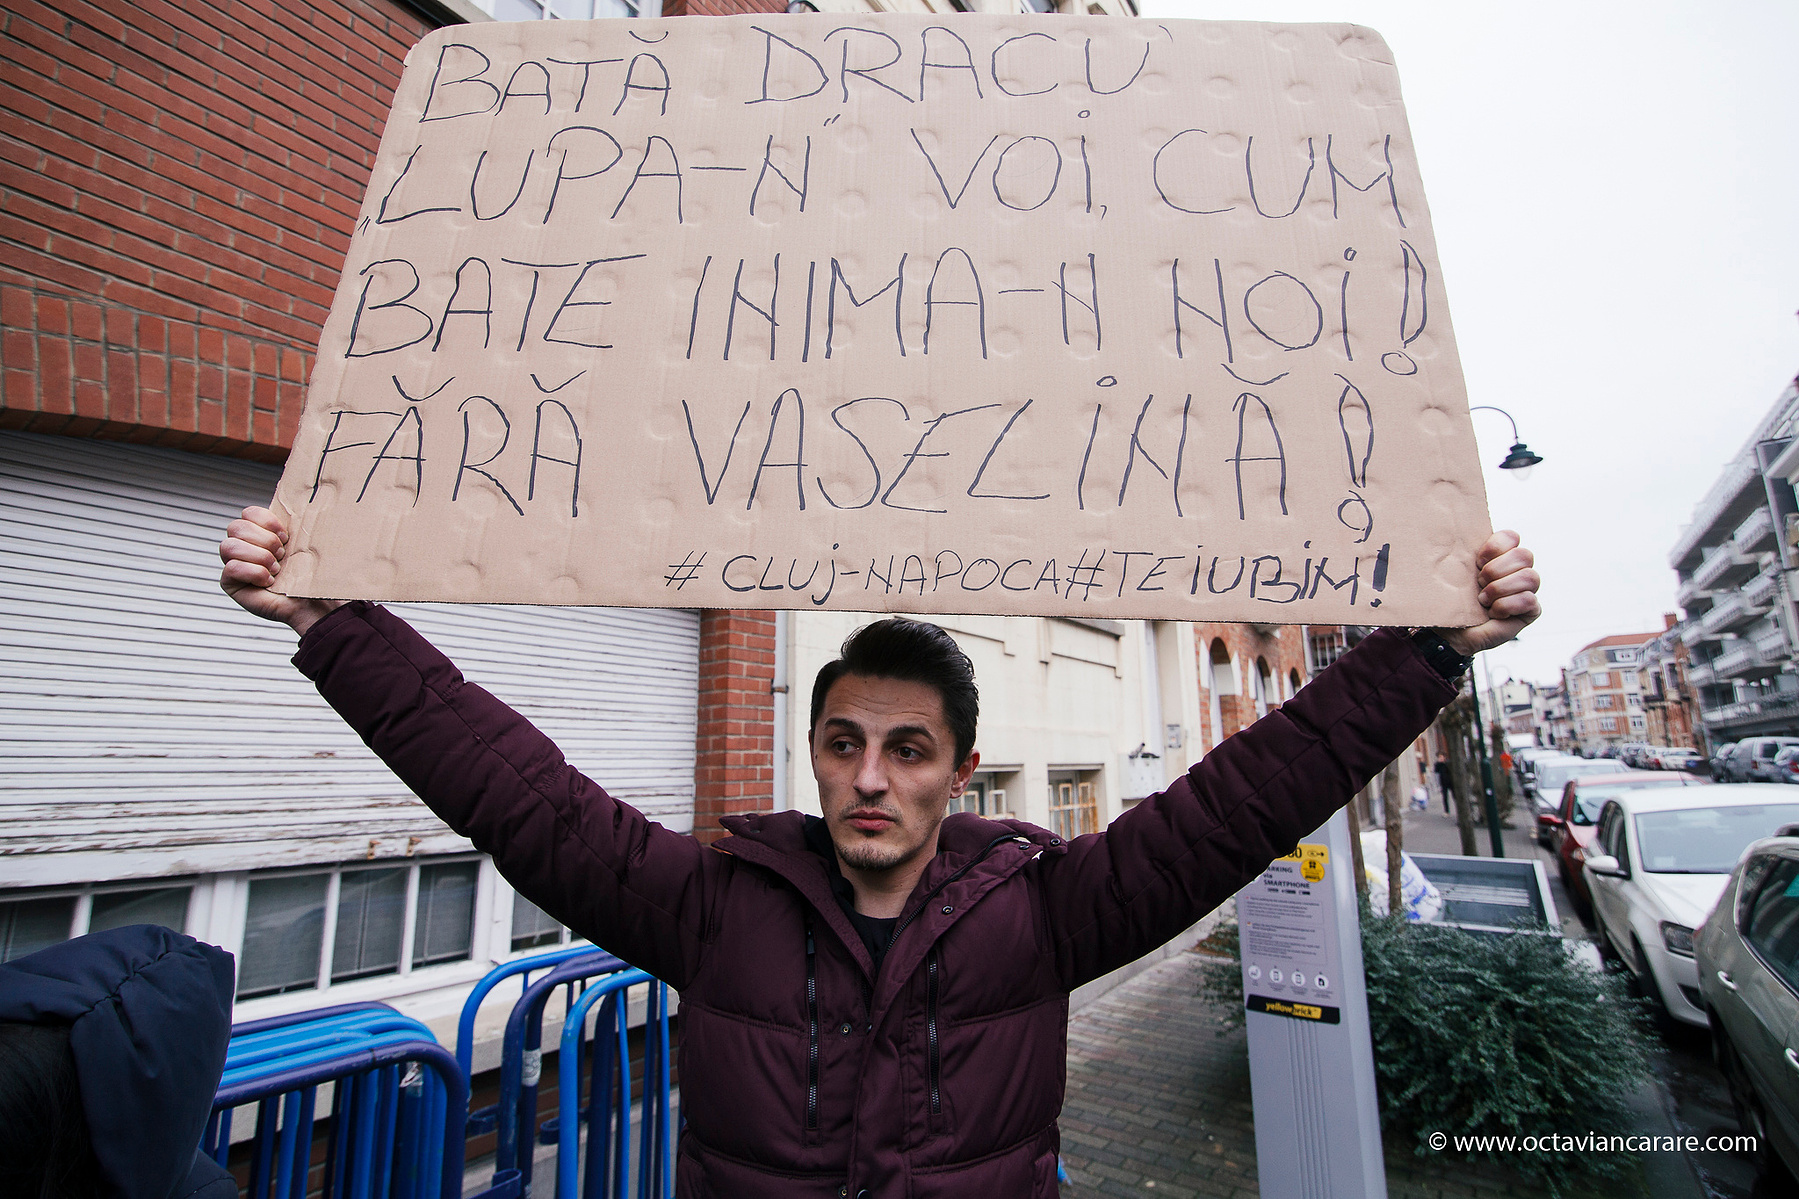 BATĂ DRACU'
„LUPA-N” VOI, CUM
BATE INIMA-N NOI!
FĂRĂ VASELINĂ!
#CLUJ-NAPOCA#TEIUBIM!
PARKING
via
SMARTPHONE
yellowbrick
© www.octaviancarare.com